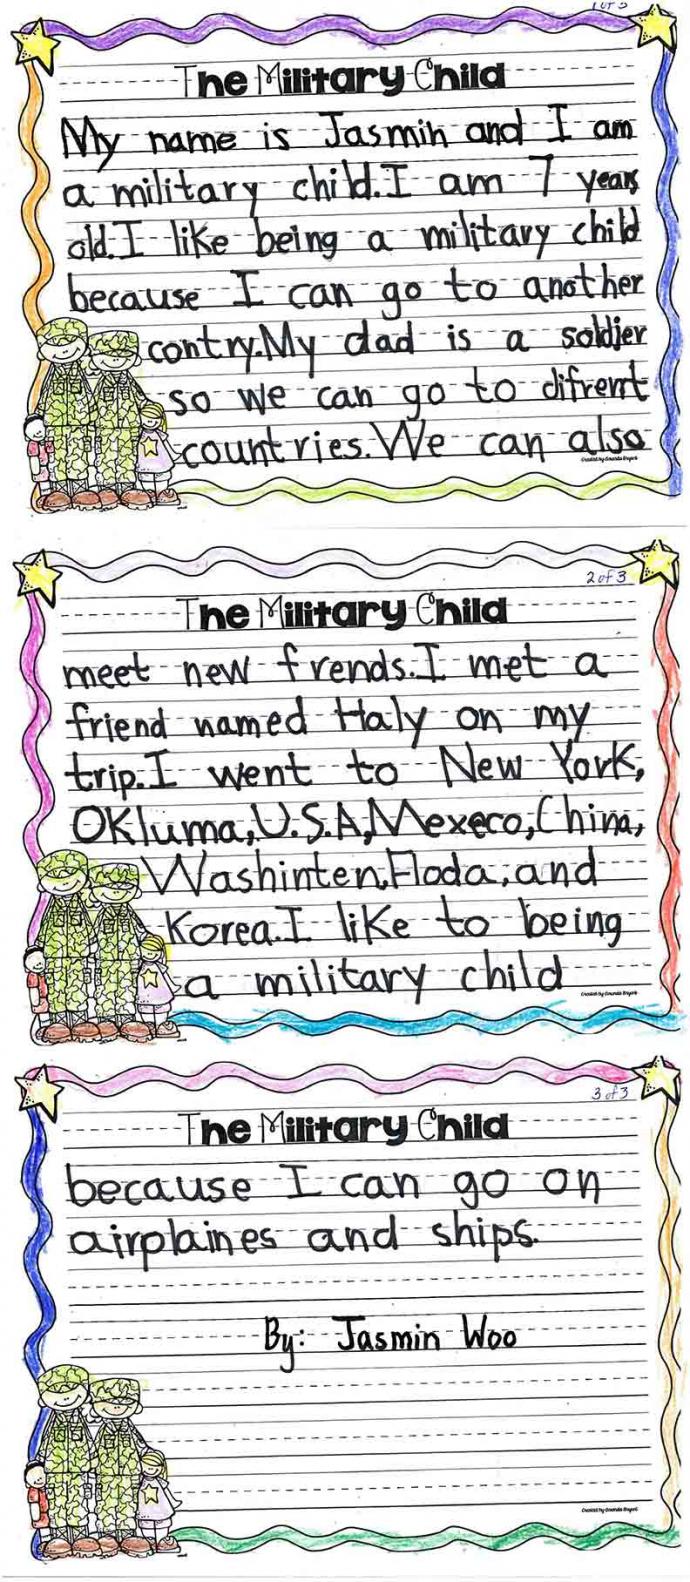 1 of 3
The Military Child
My name is Jasmin and I am
a military child. I am 7 years
old. I like being a military child
because I can go to another
contry. My dad is a soldier
so we can go to difrent
countries. We can also
Created by Amanda Bryant
2 of 3
The Military Child
meet new frends. I met a
friend named Haly on my
trip. I went to New York,
OKluma, U.S.A, Mexeco, China,
Washinten, Floda, and
Korea. I like to being
a military child
Created by Amanda Bryant
3 of 3
The Military Child
because I can go on
airplaines and ships.
By: Jasmin Woo
Created by Amanda Bryant